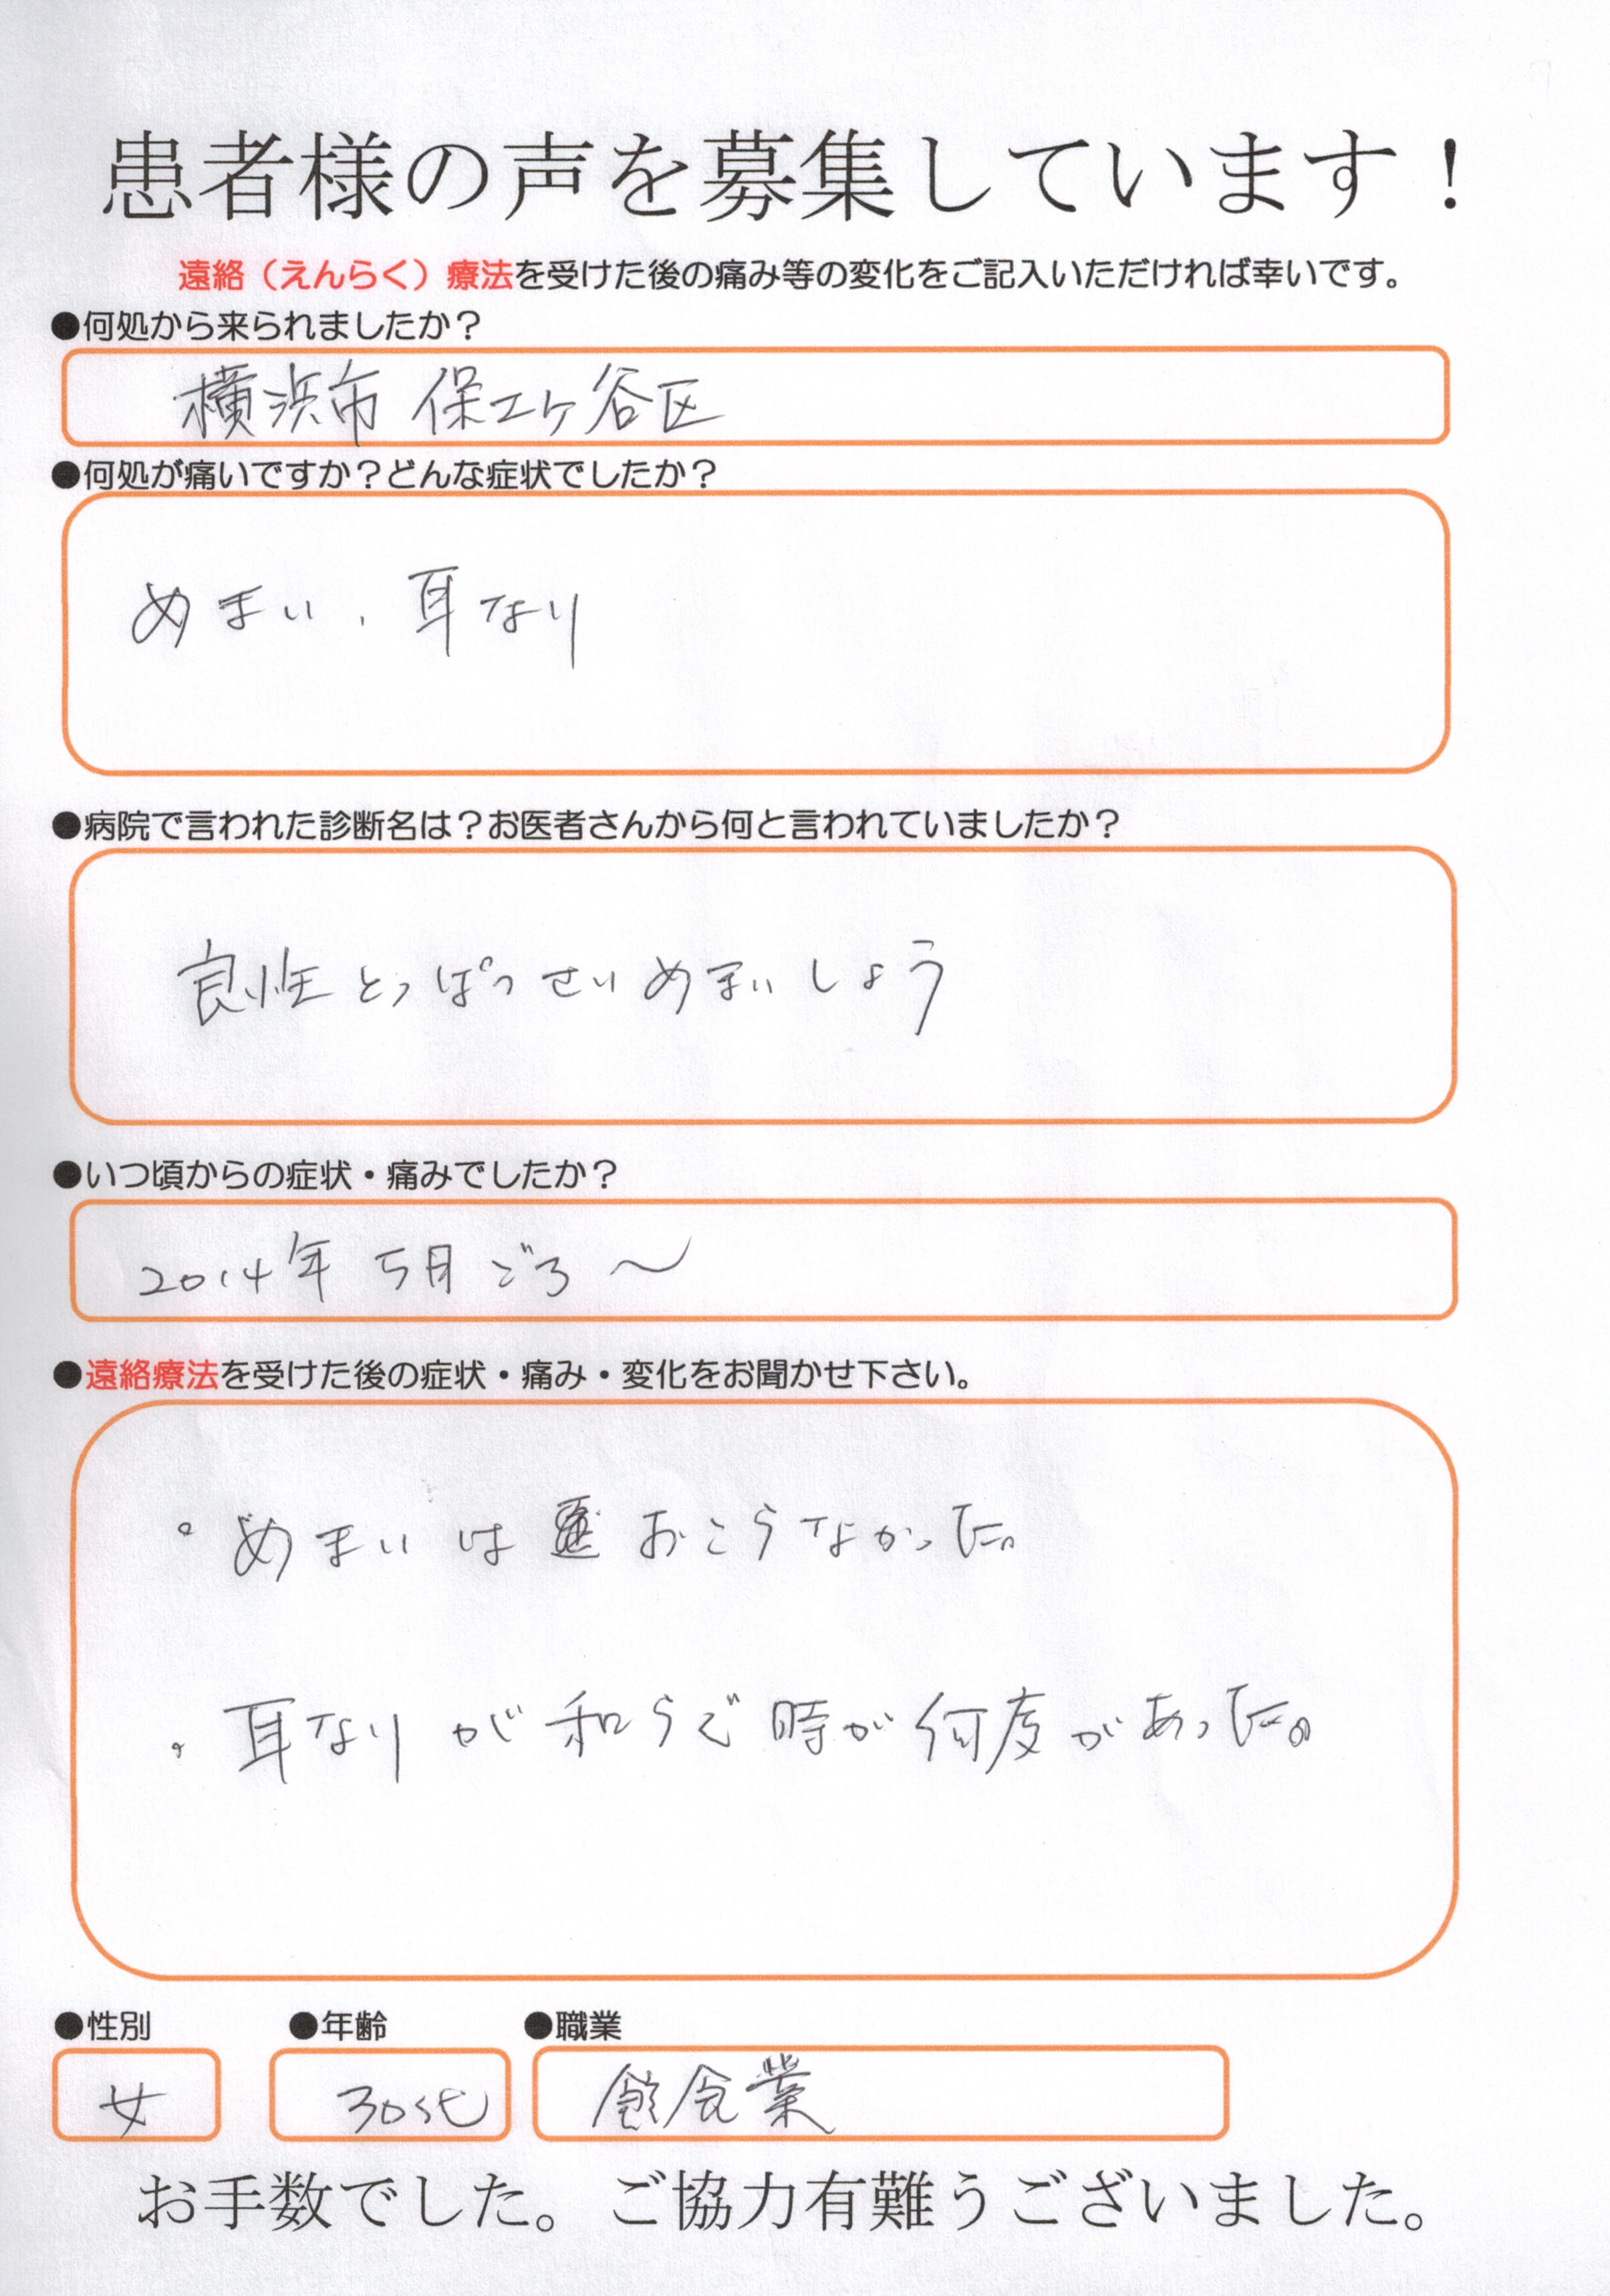 患者様の声を募集しています！
遠絡（えんらく）療法を受けた後の痛み等の変化をご記入いただければ幸いです。
●何処から来られましたか？
横浜市 保土ヶ谷区
●何処が痛いですか？どんな症状でしたか？
めまい、耳なり
●病院で言われた診断名は？お医者さんから何と言われていましたか？
良性とっぱつせいめまいしょう
●いつ頃からの症状・痛みでしたか？
2014年 5月ごろ〜
●遠絡療法を受けた後の症状・痛み・変化をお聞かせ下さい。
・めまいは おこらなかった。
・耳なりが和らぐ時が何度があった。
●性別 ●年齢 ●職業
女 30代 飲食業
お手数でした。ご協力有難うございました。